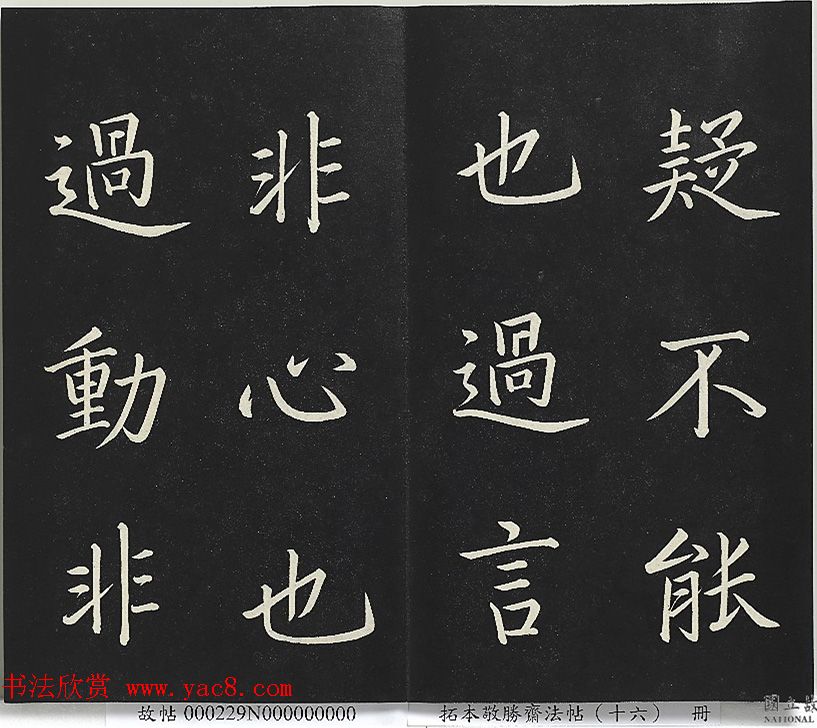 疑不能
也過言
非心也
過動非
书法欣赏 www.yac8.com
故帖 000229N000000000
拓本敬勝齋法帖（十六） 冊
國立故
NATIONAL